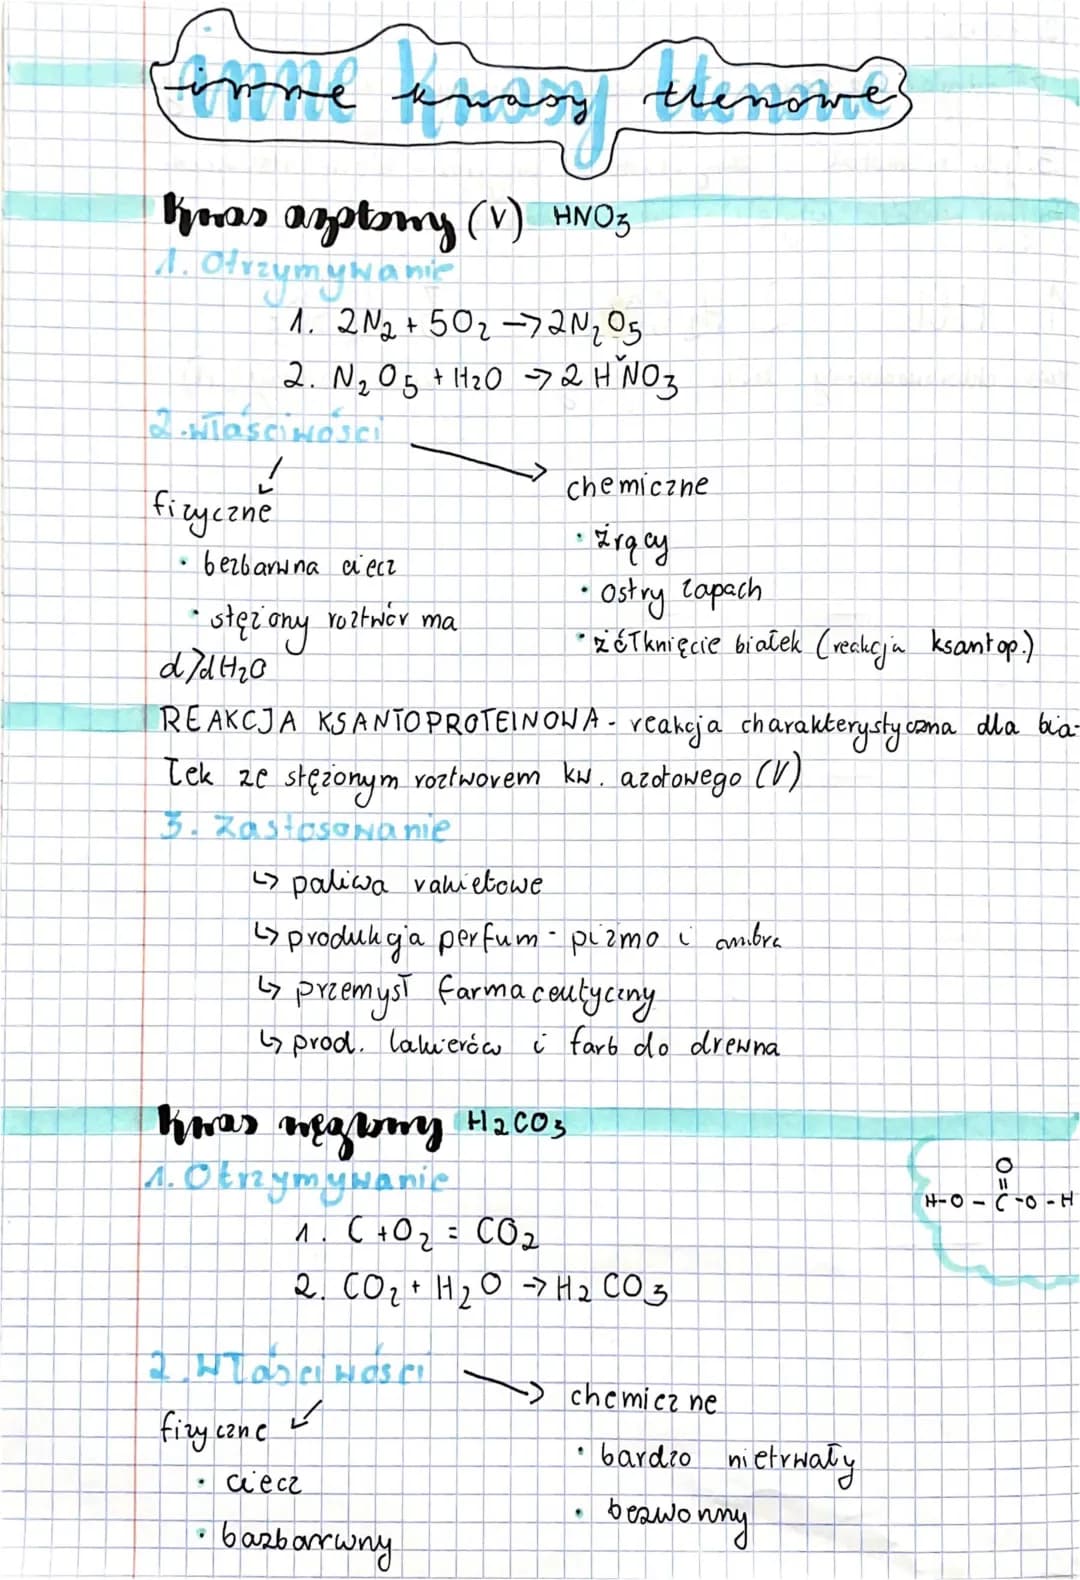 inne kwasy tlenowe
Kwas azotowy (V) HNO3
1. Otrzymywanie
1. 2N2 + 5O2 → 2N2O5
2. N2O5 + H2O → 2 HNO3
V
2. Właściwości
fizyczne
• bezbarwna ciecz
• stężony roztwór ma
d>dH2O
chemiczne
• żrący
• ostry zapach
• żółknięcie białek (reakcja ksantop.)
REAKCJA KSANTOPROTEINOWA - reakcja charakterystyczna dla bia-
łek ze stężonym roztworem kw. azotowego (V)
3. Zastosowanie
↳ paliwa rakietowe
↳ produkcja perfum - piżmo i ambra
↳ przemysł farmaceutyczny
↳ prod. lakierów i farb do drewna
Kwas węglowy H2CO3
1. Otrzymywanie
1. C + O2 = CO2
2. CO2 + H2O → H2CO3
O
=
H-O-C-O-H
2. Właściwości
fizyczne
• ciecz
• bazbarwny
chemiczne
• bardzo nietrwały
• bezwonny